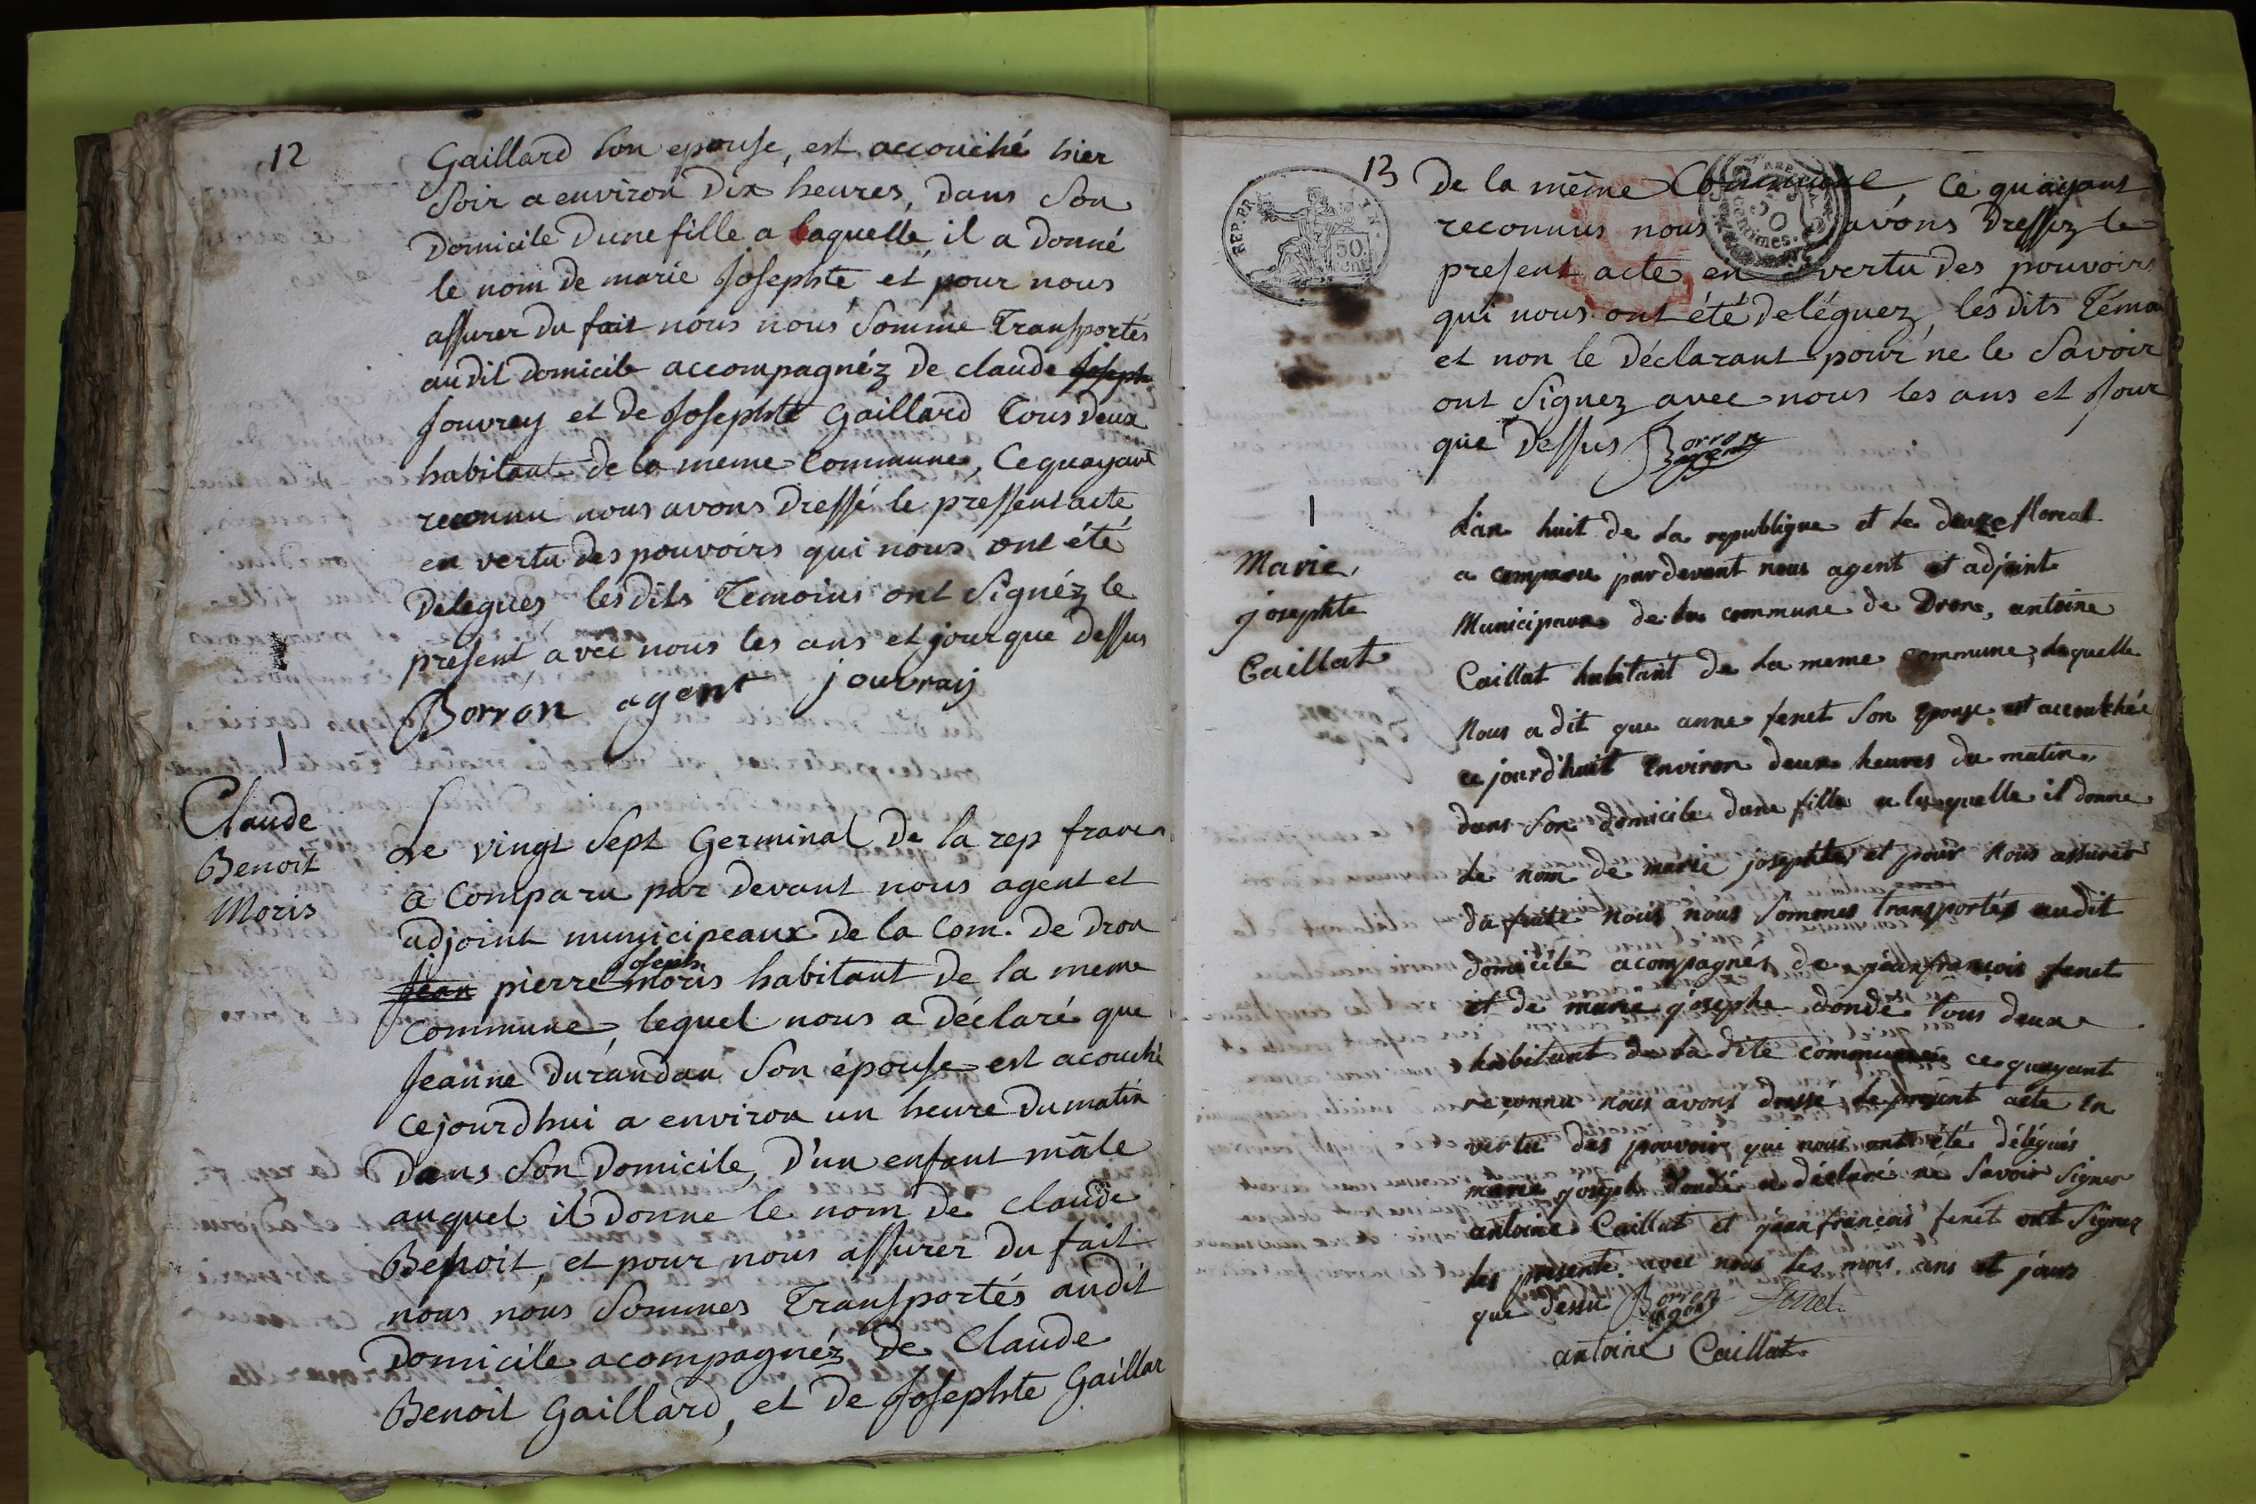 12
Gaillard son epouse, est accouché hier
soir a environ dix heures, dans son
domicile dune fille a laquelle il a donné
le nom de marie Josephte et pour nous
assurer du fait nous nous somme transportés
audit domicile accompagnéz de claude Joseph
Jouvray et de Josephte Gaillard tous deux
habitant de la meme commune, Ce quayant
reconnu nous avons dressé le pressent acte
en vertu des pouvoirs qui nous ont été
delegues, lesdits temoins ont signéz le
present avec nous les ans et jour que dessus
Borron agent jouvray
Claude
Benoit
Moris
Le vingt sept Germinal de la rep franc
a comparu par devant nous agent et
adjoint municipeaux de la Com. de dron
Joseph
Jean pierre moris habitant de la meme
commune, lequel nous a déclaré que
Jeanne durandau son épouse est acouché
cejourdhui a environ un heure du matin
dans son domicile, d'un enfant mâle
auquel il donne le nom de claude
Benoit, et pour nous assurer du fait
nous nous sommes transportés audit
domicile acompagnéz de Claude
Benoit Gaillard, et de Josephte Gaillar
REP. FR
50
cent
13
de la même Commune, ce quayant
reconnus nous avons dressez le
present acte en vertu des pouvoirs
qui nous ont été deléguez, les dits Témo
et non le déclarant pour ne le savoir
ont signez avec nous les ans et Jour
que dessus Borron agent
Marie
josephte
Caillat
Lan huit de la republique et le douze floreal
a comparu pardevant nous agent et adjoint
Municipaux de la commune de Dron, antoine
Caillat habitant de la meme commune, lequelle
Nous a dit que anne fenet son epouse est accoukhée
ce jourd'huit environ deux heures du matin,
dans son domicile dune fille a laquelle il donne
le nom de marie josephte, et pour Nous assurer
du faite nous nous sommes transportés audit
domicile acompagnés de jean françois fenet
et de marie josephe dondé tous deux
habitant de la dite commune ce quayant
reconnu nous avons dressé le present acte en
vertu des pouvoir qui nous ont été délégués
marie joseph dondé a déclaré ne savoir signer
antoine Caillat et jean françois fenet ont signez
les presente avec nous les mois ans et jours
que dessu Borron agent fenet
antoine Caillat